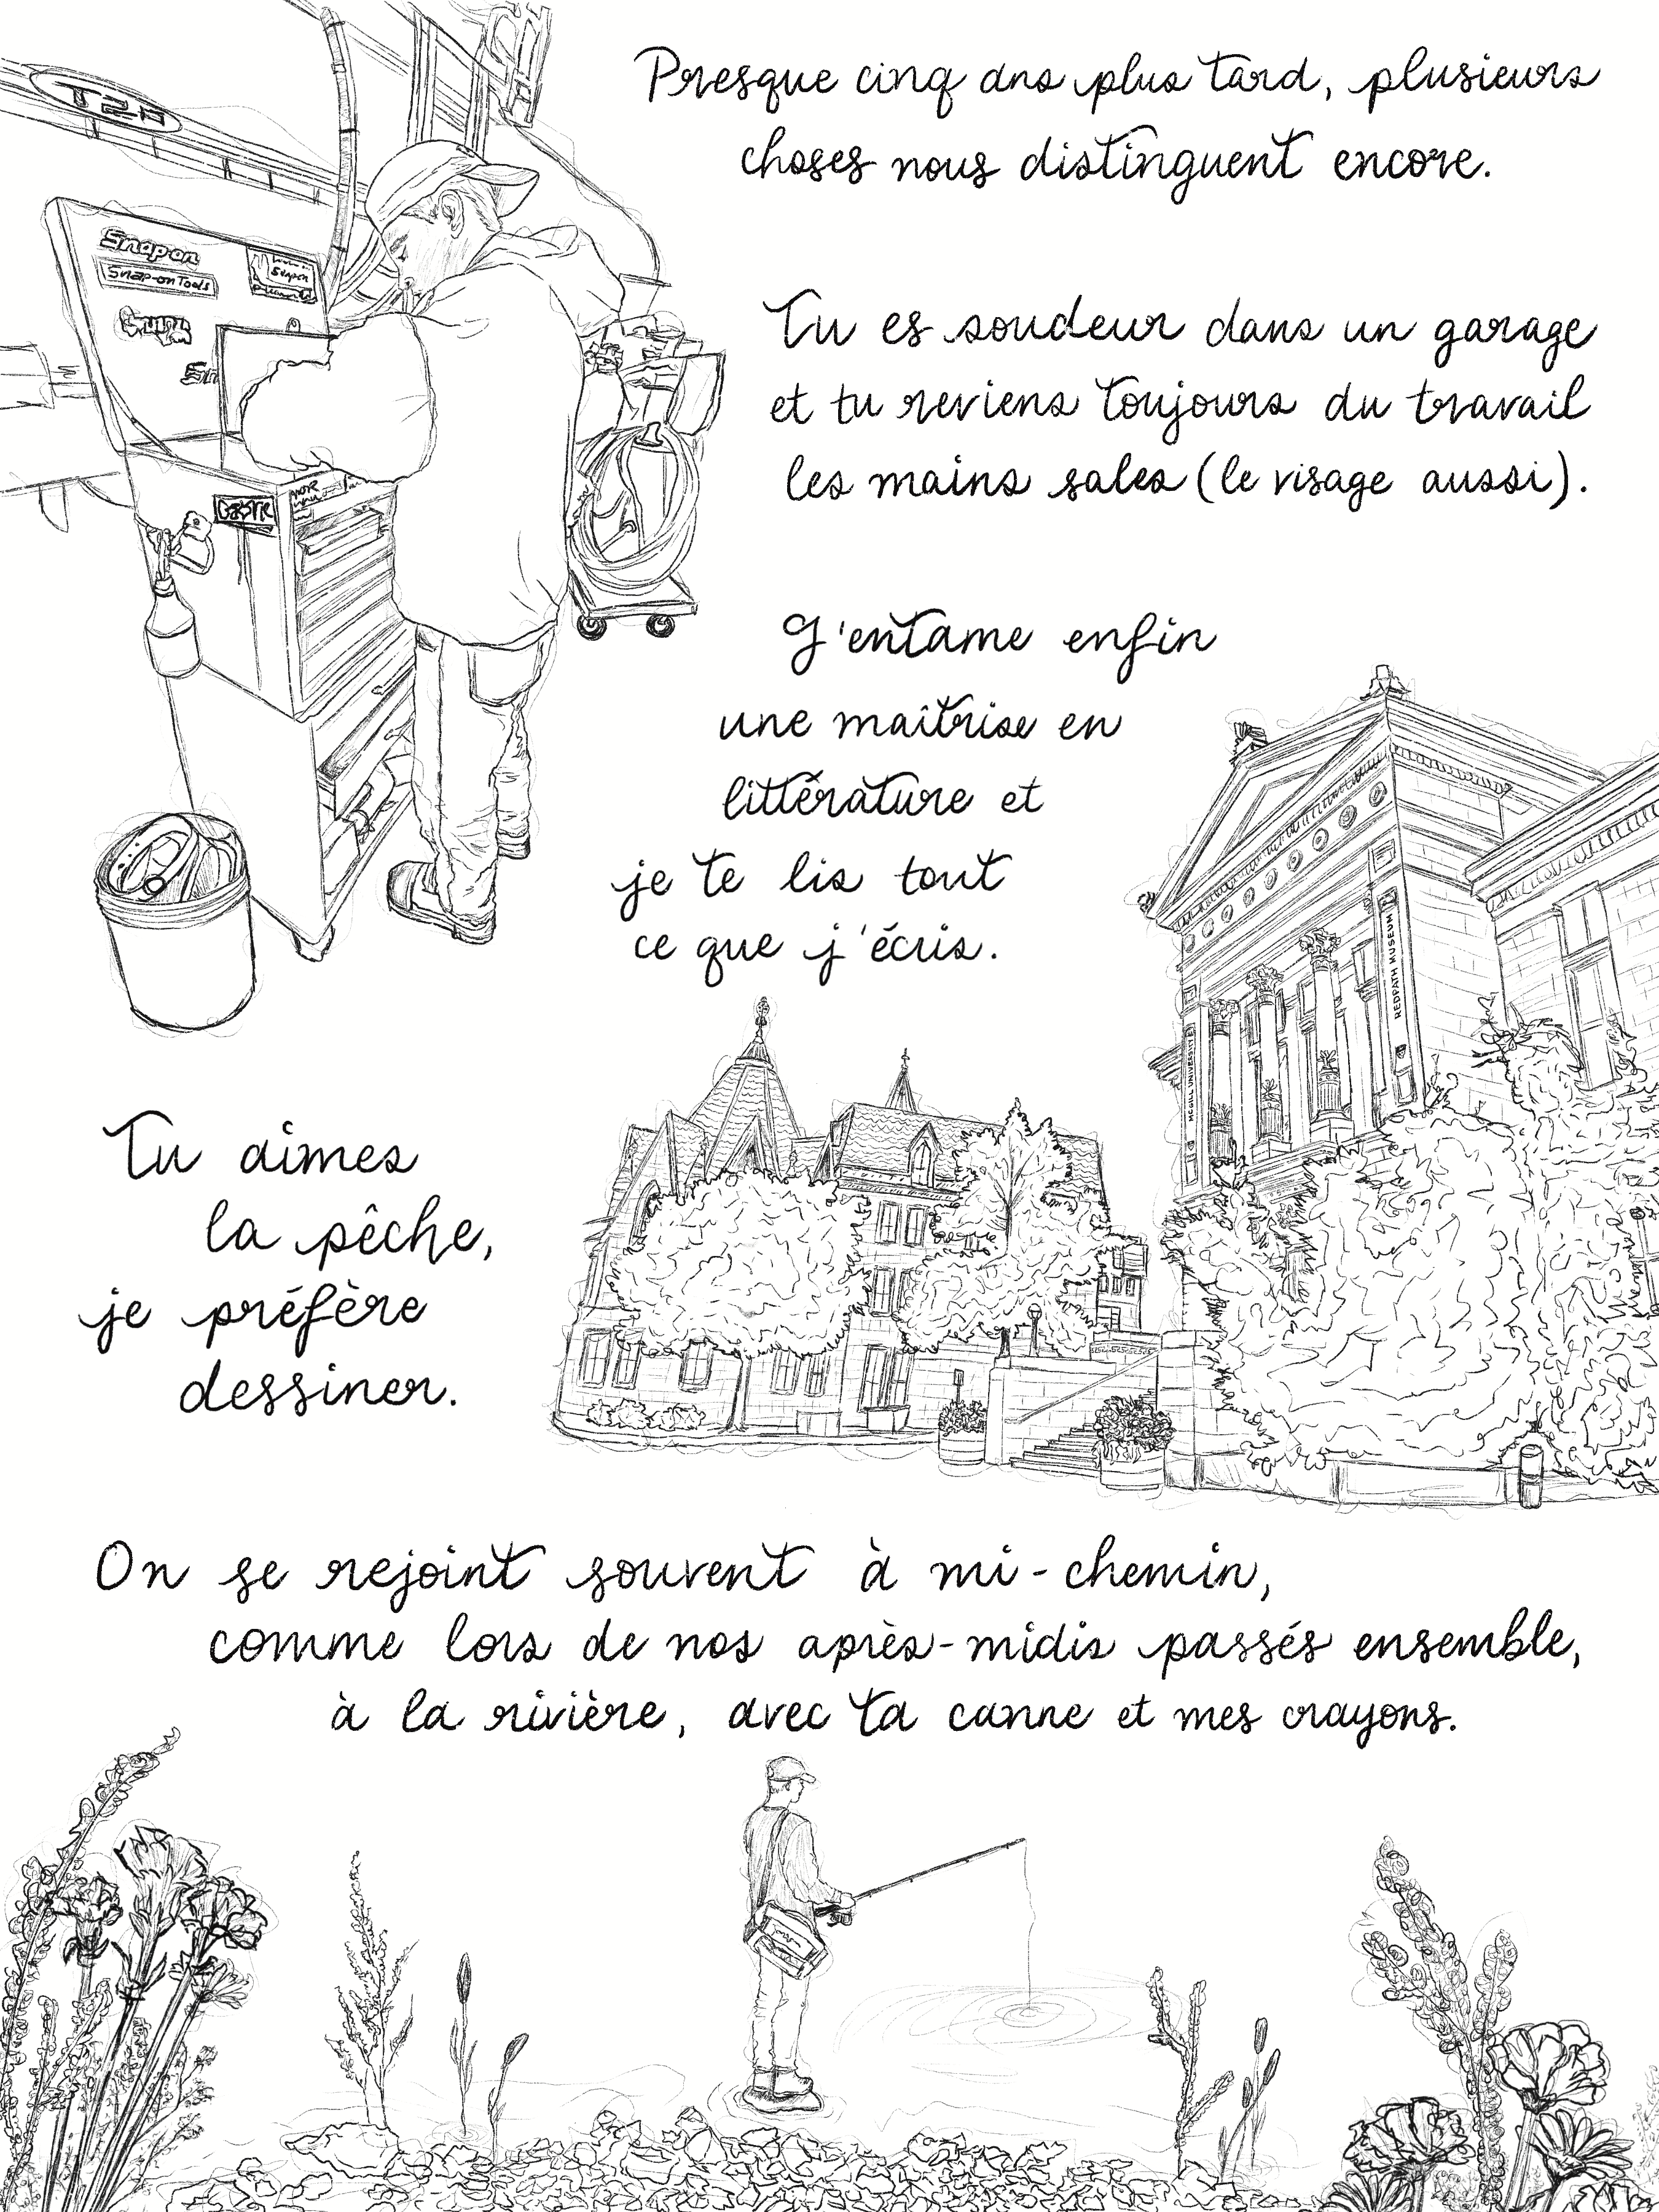 Presque cinq ans plus tard, plusieurs
choses nous distinguent encore.
Snap-on
Snap-on Tools
Tu es soudeur dans un garage
et tu reviens toujours du travail
les mains sales (le visage aussi).
J'entame enfin
une maîtrise en
littérature et
je te lis tout
ce que j'écris.
REDPATH MUSEUM
MCGILL UNIVERSITY
Tu aimes
la pêche,
je préfère
dessiner.
On se rejoint souvent à mi-chemin,
comme lors de nos après-midis passés ensemble,
à la rivière, avec ta canne et mes crayons.